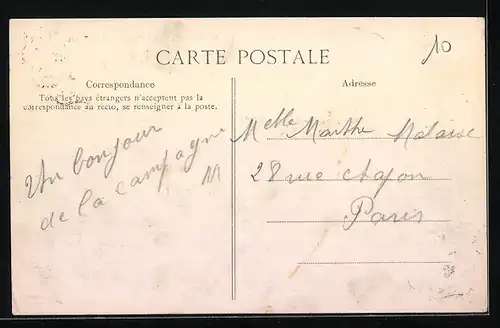 CARTE POSTALE
10
Correspondance
Tous les pays étrangers n'acceptent pas la
correspondance au recto, se renseigner à la poste.
Un bonjour
de la campagne
Adresse
Melle Marthe
28 rue
Paris